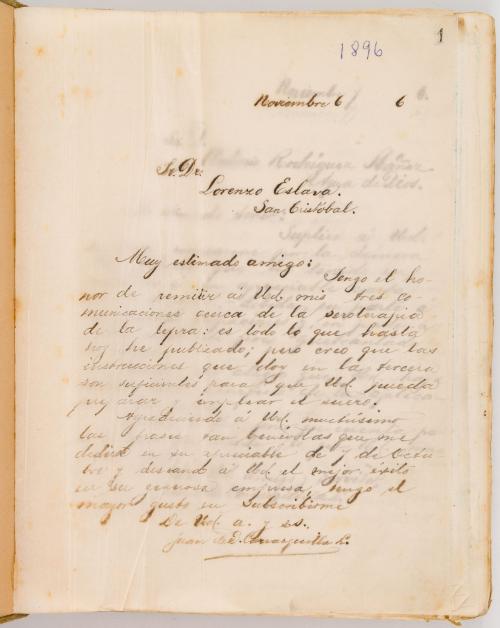 1
1896
Noviembre 6 6
Sr. Dr.
Lorenzo Eslava.
San Cristóbal.
Muy estimado amigo:
Tengo el ho-
nor de remitir á Ud. mis tres co-
municaciones acerca de la seroterapia
de la lepra: es todo lo que hasta
hoy he publicado; pero creo que las
instrucciones que doy en la tercera
son suficientes para que Ud. pueda
preparar y emplear el suero.
Agradeciendo á Ud. muchísimo
las frases tan benévolas que me
dedica en su apreciable de 7 de Octu-
bre y deseando á Ud. el mejor éxito
en su empresa, tengo el
mayor gusto en subscribirme
De Ud. a. y ss.
Juan de D. Carrasquilla L.